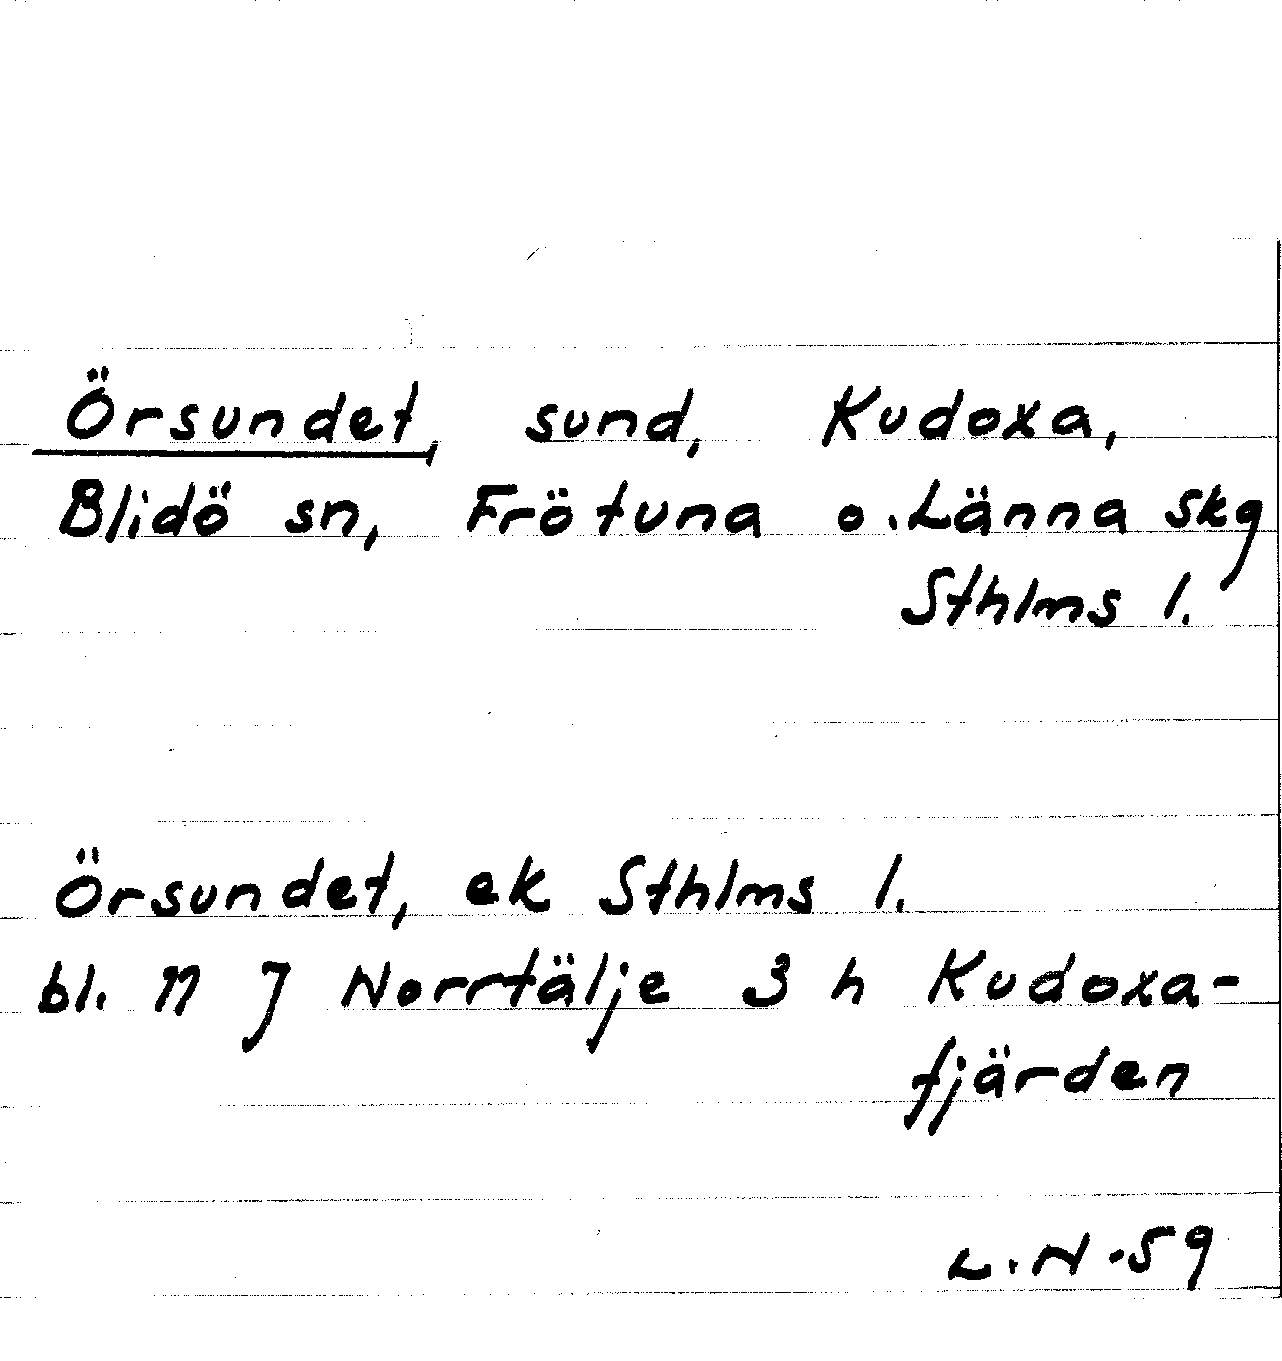 Örsundet, sund, Kudoxa,
Blidö sn, Frötuna o. Länna skg
Sthlms l.
Örsundet, ek Sthlms l.
bl. 77 J Norrtälje 3 h Kudoxa-
fjärden
L.N.59